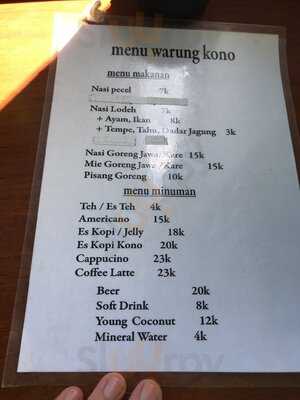 menu warung kono
menu makanan
Nasi pecel 7k
Nasi Lodeh 7k
+ Ayam, Ikan 8k
+ Tempe, Tahu, Dadar Jagung 3k
Nasi Goreng Jawa/Kare 15k
Mie Goreng Jawa /Kare 15k
Pisang Goreng 10k
menu minuman
Teh / Es Teh 4k
Americano 15k
Es Kopi / Jelly 18k
Es Kopi Kono 20k
Cappucino 23k
Coffee Latte 23k
Beer 20k
Soft Drink 8k
Young Coconut 12k
Mineral Water 4k